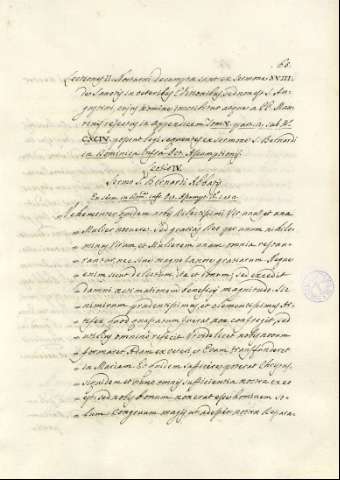 68.
Lectiones II. Nocturni decumptæ sunt ex Sermone XVIII.
de Sanctis in veteribus Editionibus sed non est S. Au-
gustini, cujus nomine inscribitur atque a PP. Mau-
rinis rejectus in Appendicem Tom. V.
CXCIV. possent legi sequentes ex Sermone S. Bernardi
in Dominica infra Oct. Assumptionis
Lectio IV.
Sermo S. Bernardi Abbatis
Ex Serm. in Dom. infr. Oct. Assumpt.
Vehementer quidem nobis dilectissimi Vir unus et una
Mulier nocuere, sed gratias Deo per unum nihilo-
minus Virum, et Mulierem unam omnia restau-
rantur, nec sine magno fœnore gratiarum. Neque
enim sicut delictum, ita et donum; sed excedit
damni æstimationem beneficij magnitudo. Sic
nimirum prudentissimus, et clementissimus Ar-
tifex quod quassatum fuerat non confregit, sed
utilius omnino refecit. Ut videlicet nobis novum
formaret Adam ex veteri, et Evam transfunderet
in Mariam. Et quidem sufficere poterat Christus,
siquidem et nunc omnis sufficientia nostra ex eo
est, sed nobis bonum non erat esse hominem so-
lum. Congruum magis ut adesset nostræ Repara-